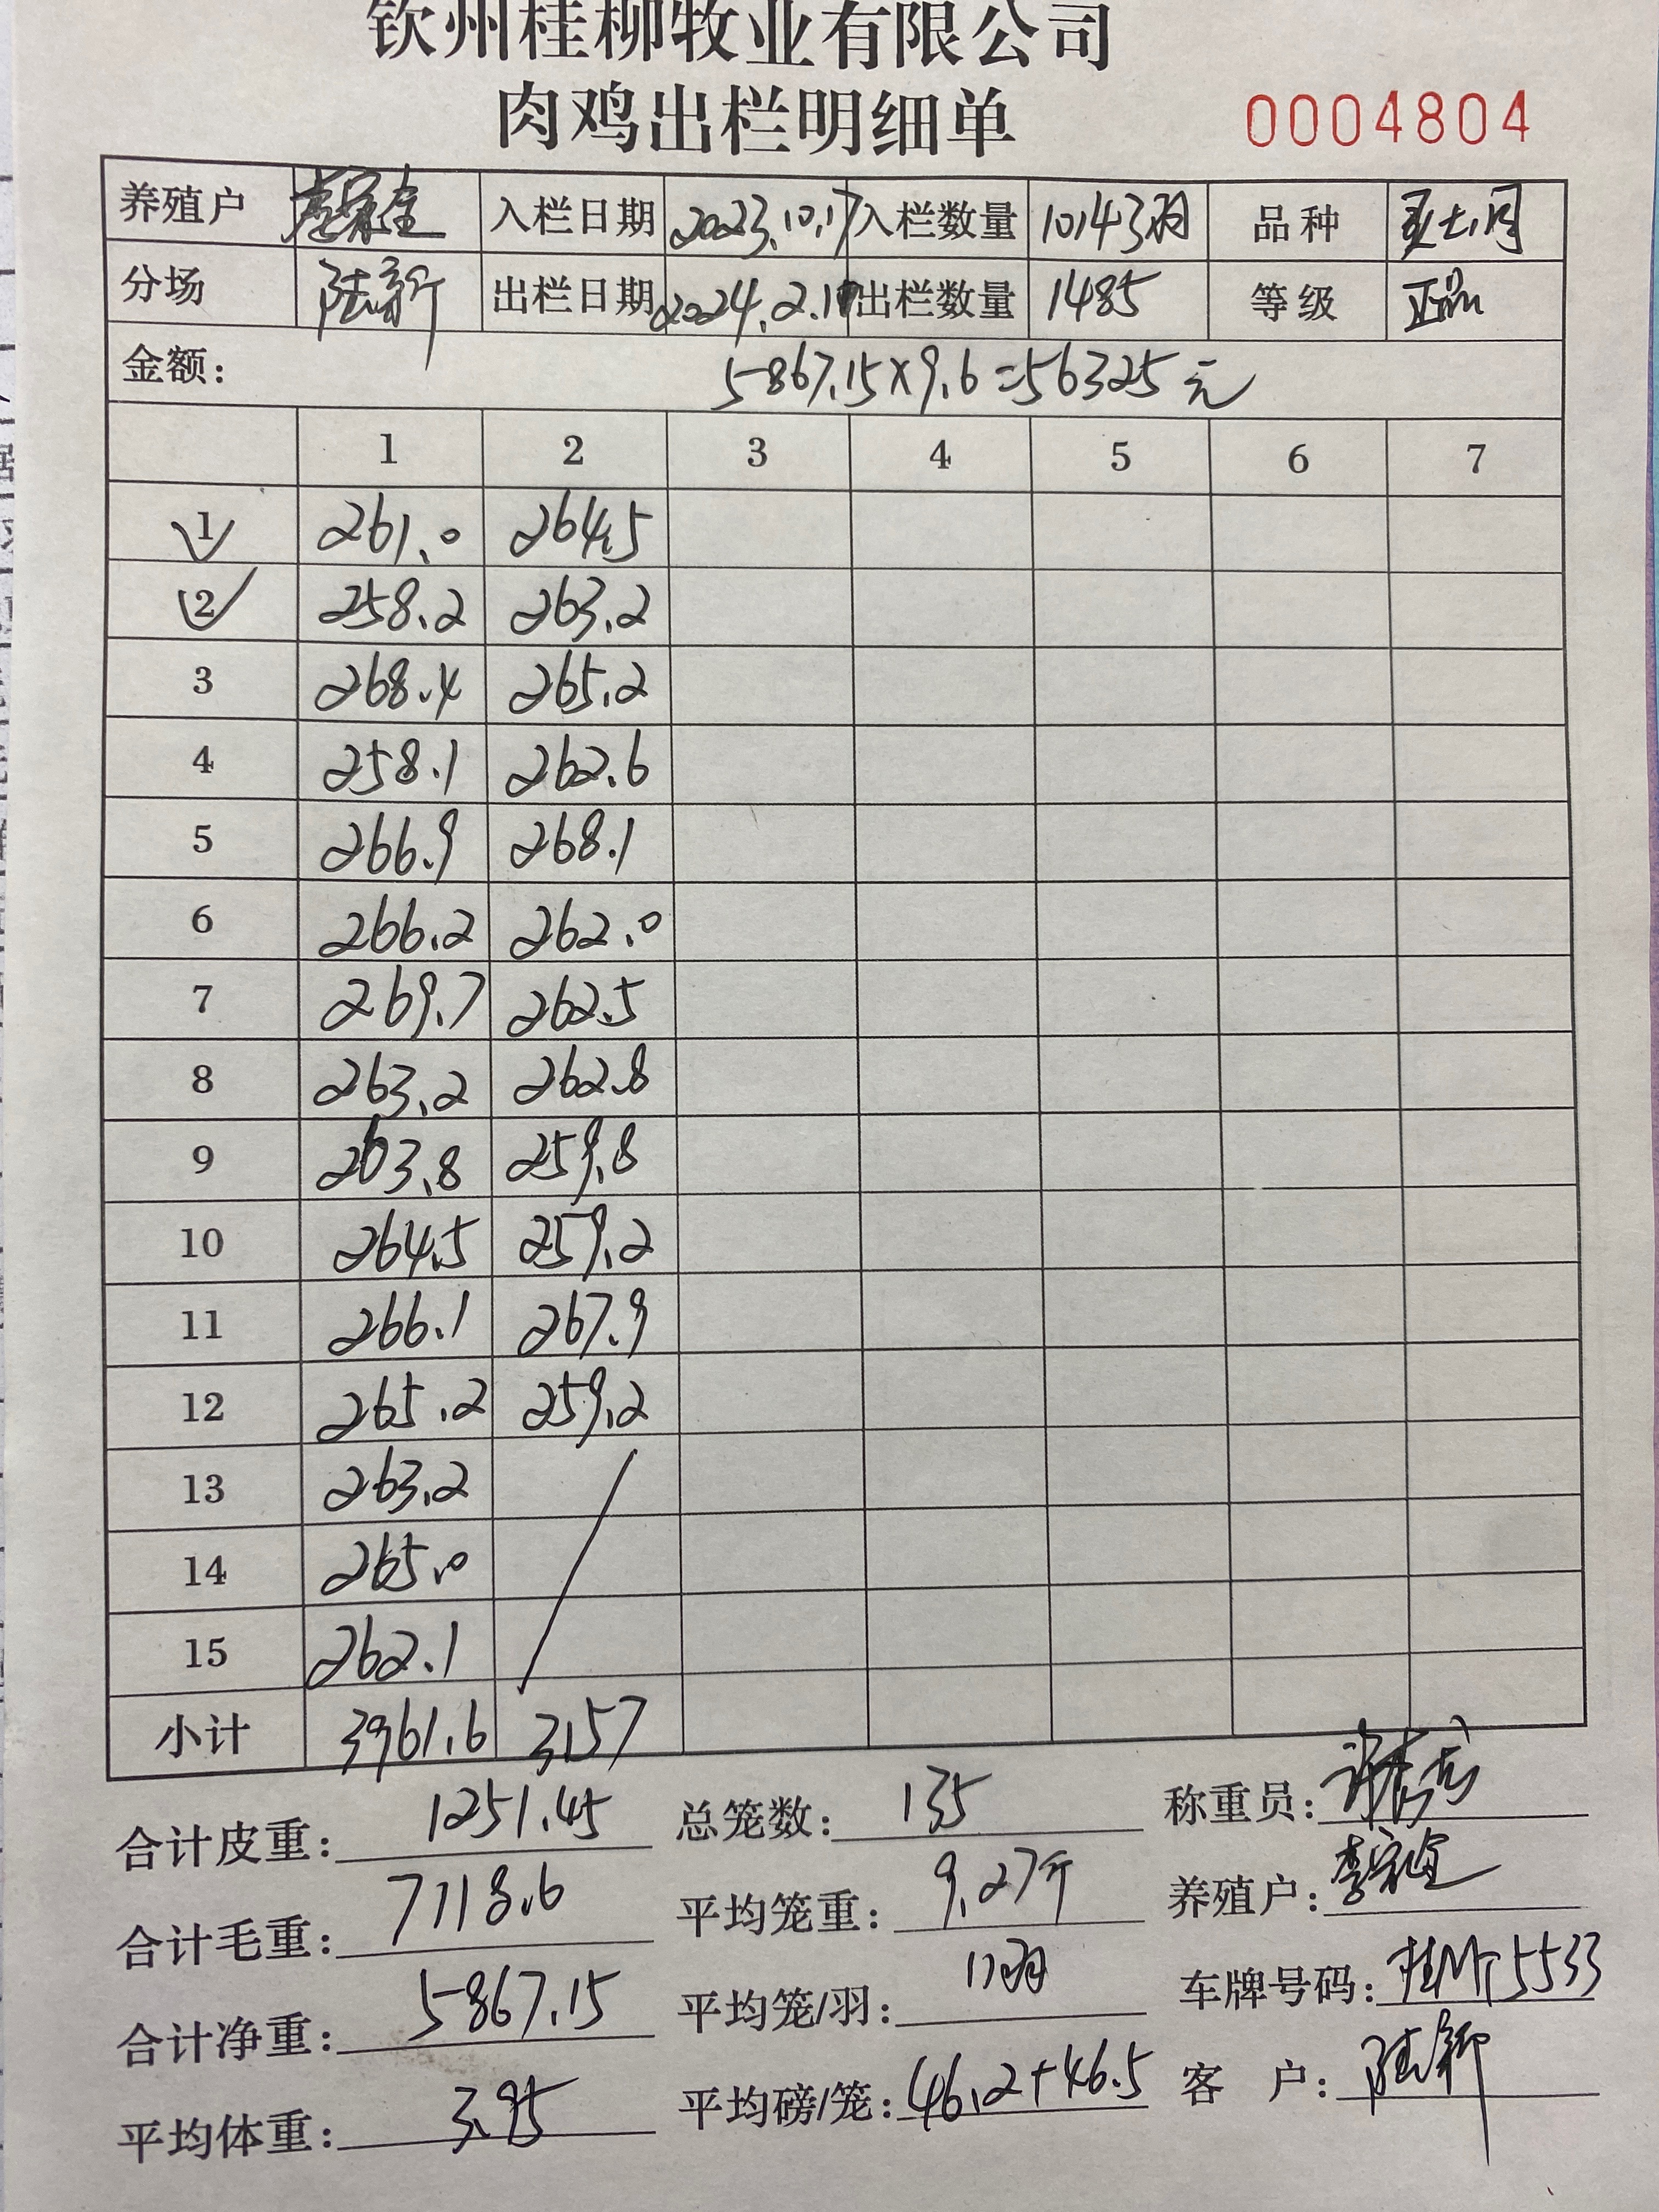 钦州桂柳牧业有限公司
肉鸡出栏明细单 0004804
养殖户 入栏日期 2023.10.17 入栏数量 10143羽 品种
分场 陆新 出栏日期 2024.2. 出栏数量 1485 等级 正品
金额: 5867.15×9.6=56325元
1 2 3 4 5 6 7
1 261.0 264.5
2 258.2 263.2
3 268.4 265.2
4 258.1 262.6
5 266.9 268.1
6 266.2 262.0
7 269.7 262.5
8 263.2 262.8
9 263.8 259.8
10 264.5 259.2
11 266.1 267.9
12 265.2 259.2
13 263.2
14 265.0
15 262.1
小计 3961.6 3157
合计皮重: 1251.45 总笼数: 135 称重员:
合计毛重: 7118.6 平均笼重: 9.27斤 养殖户:
合计净重: 5867.15 平均笼/羽: 11羽 车牌号码:
平均体重: 3.95 平均磅/笼: 46.2+46.5 客 户: